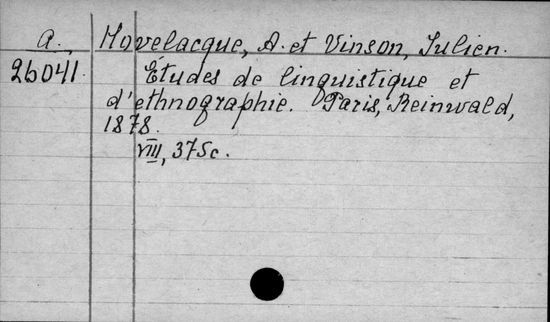 A. Hovelacque, A. et Vinson, Julien.
26041. Études de linguistique et
d'ethnographie. Paris, Reinwald,
1878.
VIII, 375c.